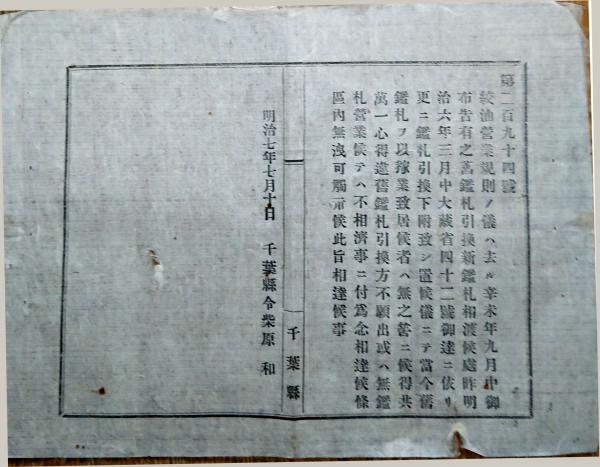 第二百九十四號
絞油營業規則ノ儀ハ去ル辛未年九月中御
布告有之舊鑑札引換新鑑札相渡候處昨明
治六年三月中大藏省四十二號御達ニ依リ
更ニ鑑札引換下附致シ置候儀ニテ當今舊
鑑札ヲ以稼業致居候者ハ無之筈ニ候得共
萬一心得違舊鑑札引換方不願出或ハ無鑑
札營業候テハ不相濟事ニ付爲念相達候條
區內無洩可觸示候此旨相達候事
千葉縣
明治七年七月十日 千葉縣令柴原和